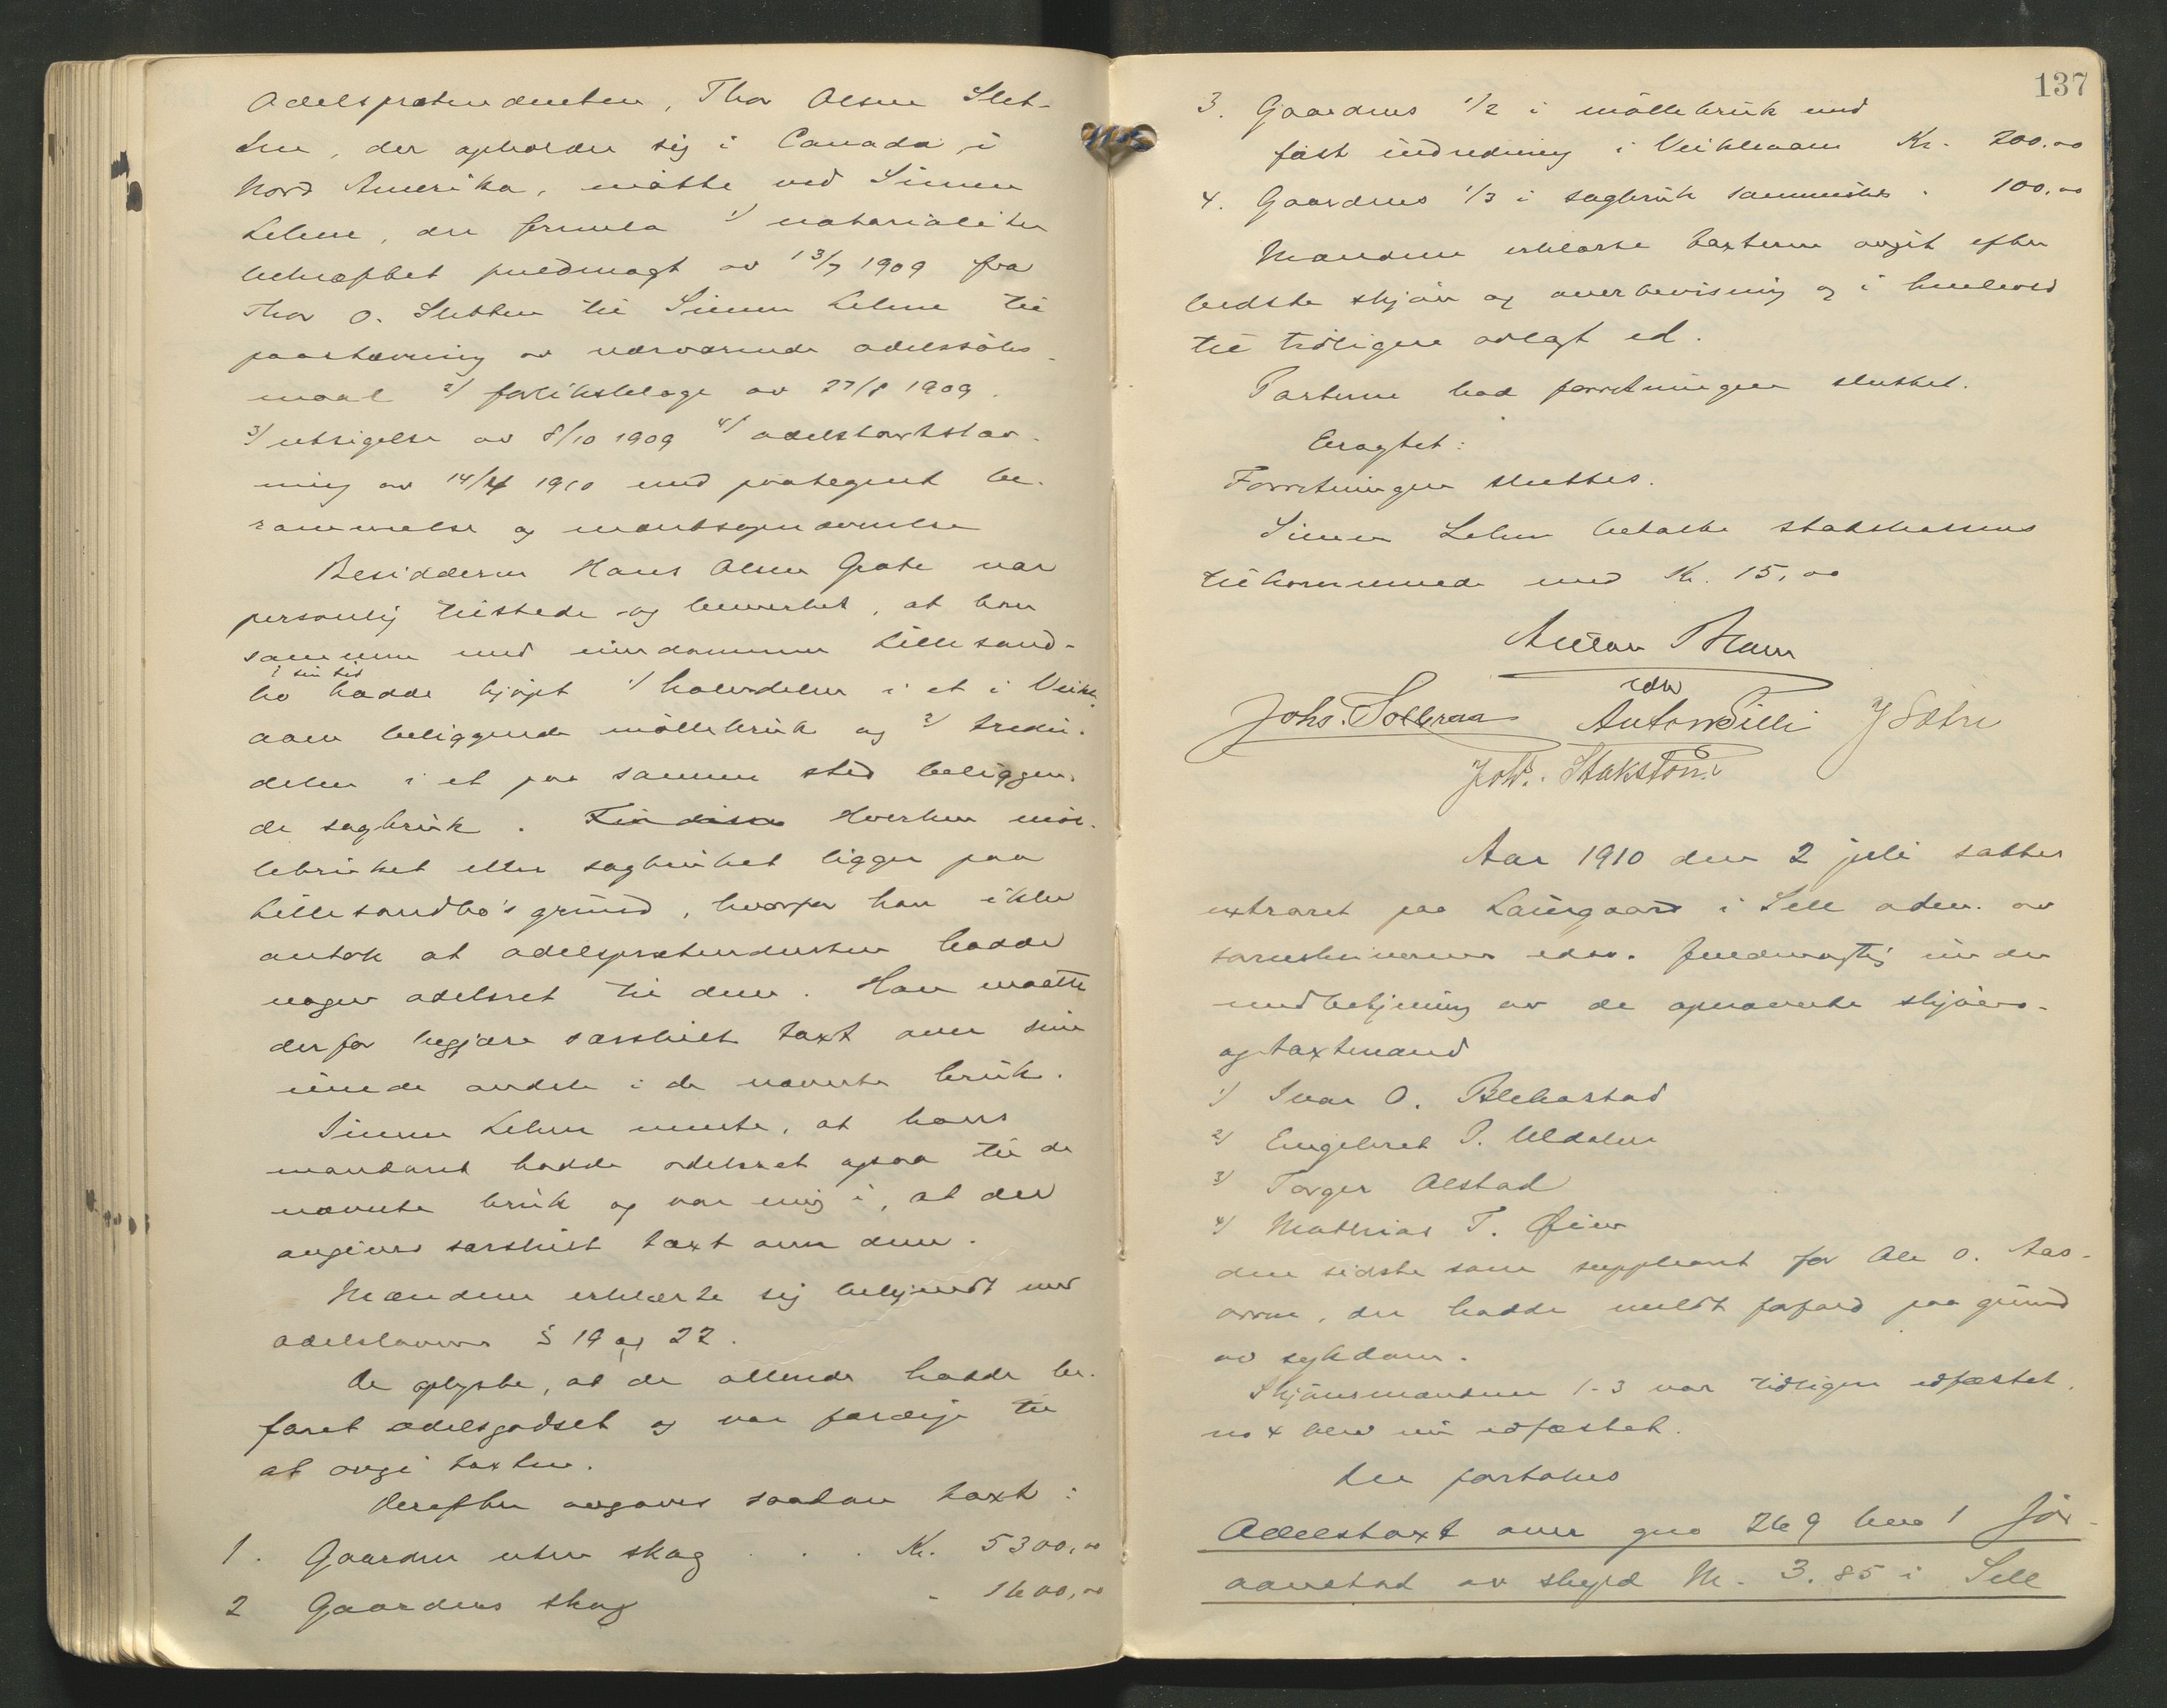 Odelsprætendenten, Thor Olsen Slet-
ten, der opholder sig i Canada i
Nord Amerika, møtte ved Simen
Lehne, der fremla 1/ notarialiter
bekræftet fuldmagt av 13/7 1909 fra
Thor O. Sletten til Simen Lehne til
paastævning av nærværende odelssøks-
maal 2/ forliksklage av 27/8 1909.
3/ utsigelse av 8/10 1909 4/ odelstaxtstæv-
ning av 14/4 1910 med paategnet be-
rammelse og mændsopnævnelse
Besidderen Hans Olsen Grate var
personlig tilstede og bemerket, at han
sammen med eiendommen Lillesand-
bo i sin tid hadde kjøpt 1/ halvdelen i et i Veikle-
aaen beliggende møllebruk og 2/ tredie-
delen i et paa samme sted beliggen-
de sagbruk. Hverken møl-
lebruket eller sagbruket ligger paa
Lillesandbo's grund, hvorfor han ikke
antok at odelsprætendenten hadde
nogen odelsret til dem. Han maatte
derfor begjære særskilt taxt over sin
eiende andele i de nævnte bruk.
Simen Lehne mente, at hans
mandant hadde odelsret ogsaa til de
nævnte bruk og var enig i, at der
avgives særskilt taxt over dem.
Mændene erklærte sig bekjendt med
odelslovens § 19 og 22.
De oplyste, at de allerede hadde be-
faret odelsgodset og var færdige til
at avgi taxten.
Derefter avgaves saadan taxt:
1. Gaarden uten skog . . . Kr. 5300,00
2 Gaardens skog - 1600,00
137
3. Gaardens 1/2 i møllebruk med
fast indredning i Veikleaaen Kr. 200.00
4. Gaardens 1/3 i sagbruk sammesteds - 100,00
Mændene erklærte taxterne avgit efter
bedste skjøn og overbevisning og i henhold
til tidligere avlagt ed.
Parterne bad forretningen sluttet.
Eragtet:
Forretningen sluttes.
Simen Lehne betalte statskassens
tilkommende med Kr. 15,00
Anton
edsv
Johs. Solbraa Anton Silli J Sætre
Joh. Stakston
Aar 1910 den 2 juli sattes
extraret paa Laurgaard i Sell adm. av
sorenskriverens edsv. fuldmægtig under
medbetjening av de opnævnte skjøns-
og taxtmænd
1/ Ivar O. Blekastad
2/ Engebret P. Uldalen
3/ Torger Olstad
4/ Mathias T. Øien
den sidste som suppleant for Ole O. Aas-
aaren, der hadde meldt forfald paa grund
av sykdom.
Skjønsmændene 1-3 var tidligere edfæstet,
no 4 blev nu edfæstet.
Der foretokes
Odelstaxt over gno 269 bno 1 Jør-
aanstad av skyld M. 3.85 i Sell